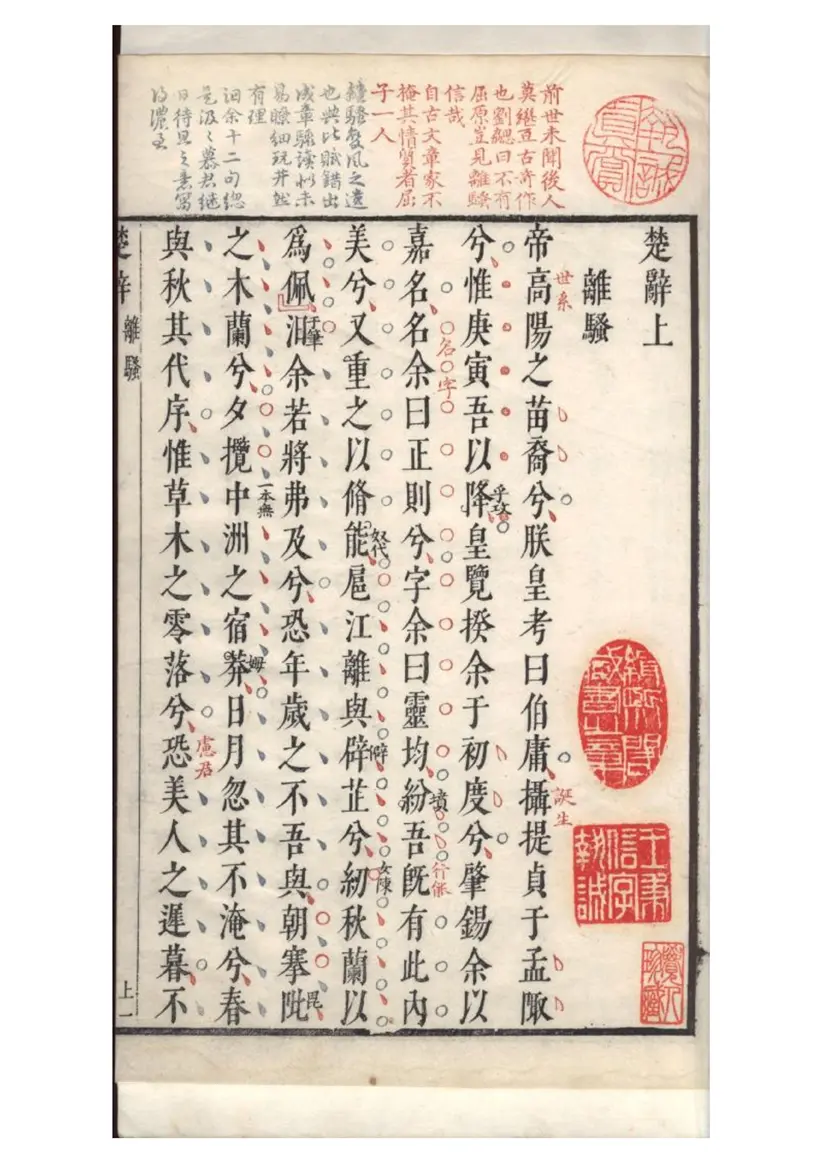 前世未聞後人
莫繼亙古奇作
也劉勰曰不有
屈原豈見離騷
信哉
自古文章家不
掩其情質者屈
子一人
離騷變風之遺
也興比賦錯出
成章驟讀似未
易瞭細玩井然
有理
汩余十二句總
是汲々慕君繼
日待旦之意寫
得濃至
楚辭上
離騷
世系
誕生
帝高陽之苗裔兮朕皇考曰伯庸攝提貞于孟陬
乎攻
兮惟庚寅吾以降皇覽揆余于初度兮肇錫余以
名字
墳
行能
嘉名名余曰正則兮字余曰靈均紛吾旣有此內
奴代
僻
女陳
美兮又重之以脩能扈江離與辟芷兮紉秋蘭以
于筆
毘
爲佩汩余若將弗及兮恐年歲之不吾與朝搴阰
一本無
姆
之木蘭兮夕攬中洲之宿莽日月忽其不淹兮春
慮君
與秋其代序惟草木之零落兮恐美人之遲暮不
楚辭 離騷
上一
王秉信字執誠